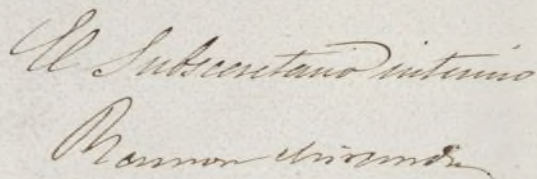 El Subsecretario interino
Ramon Miranda